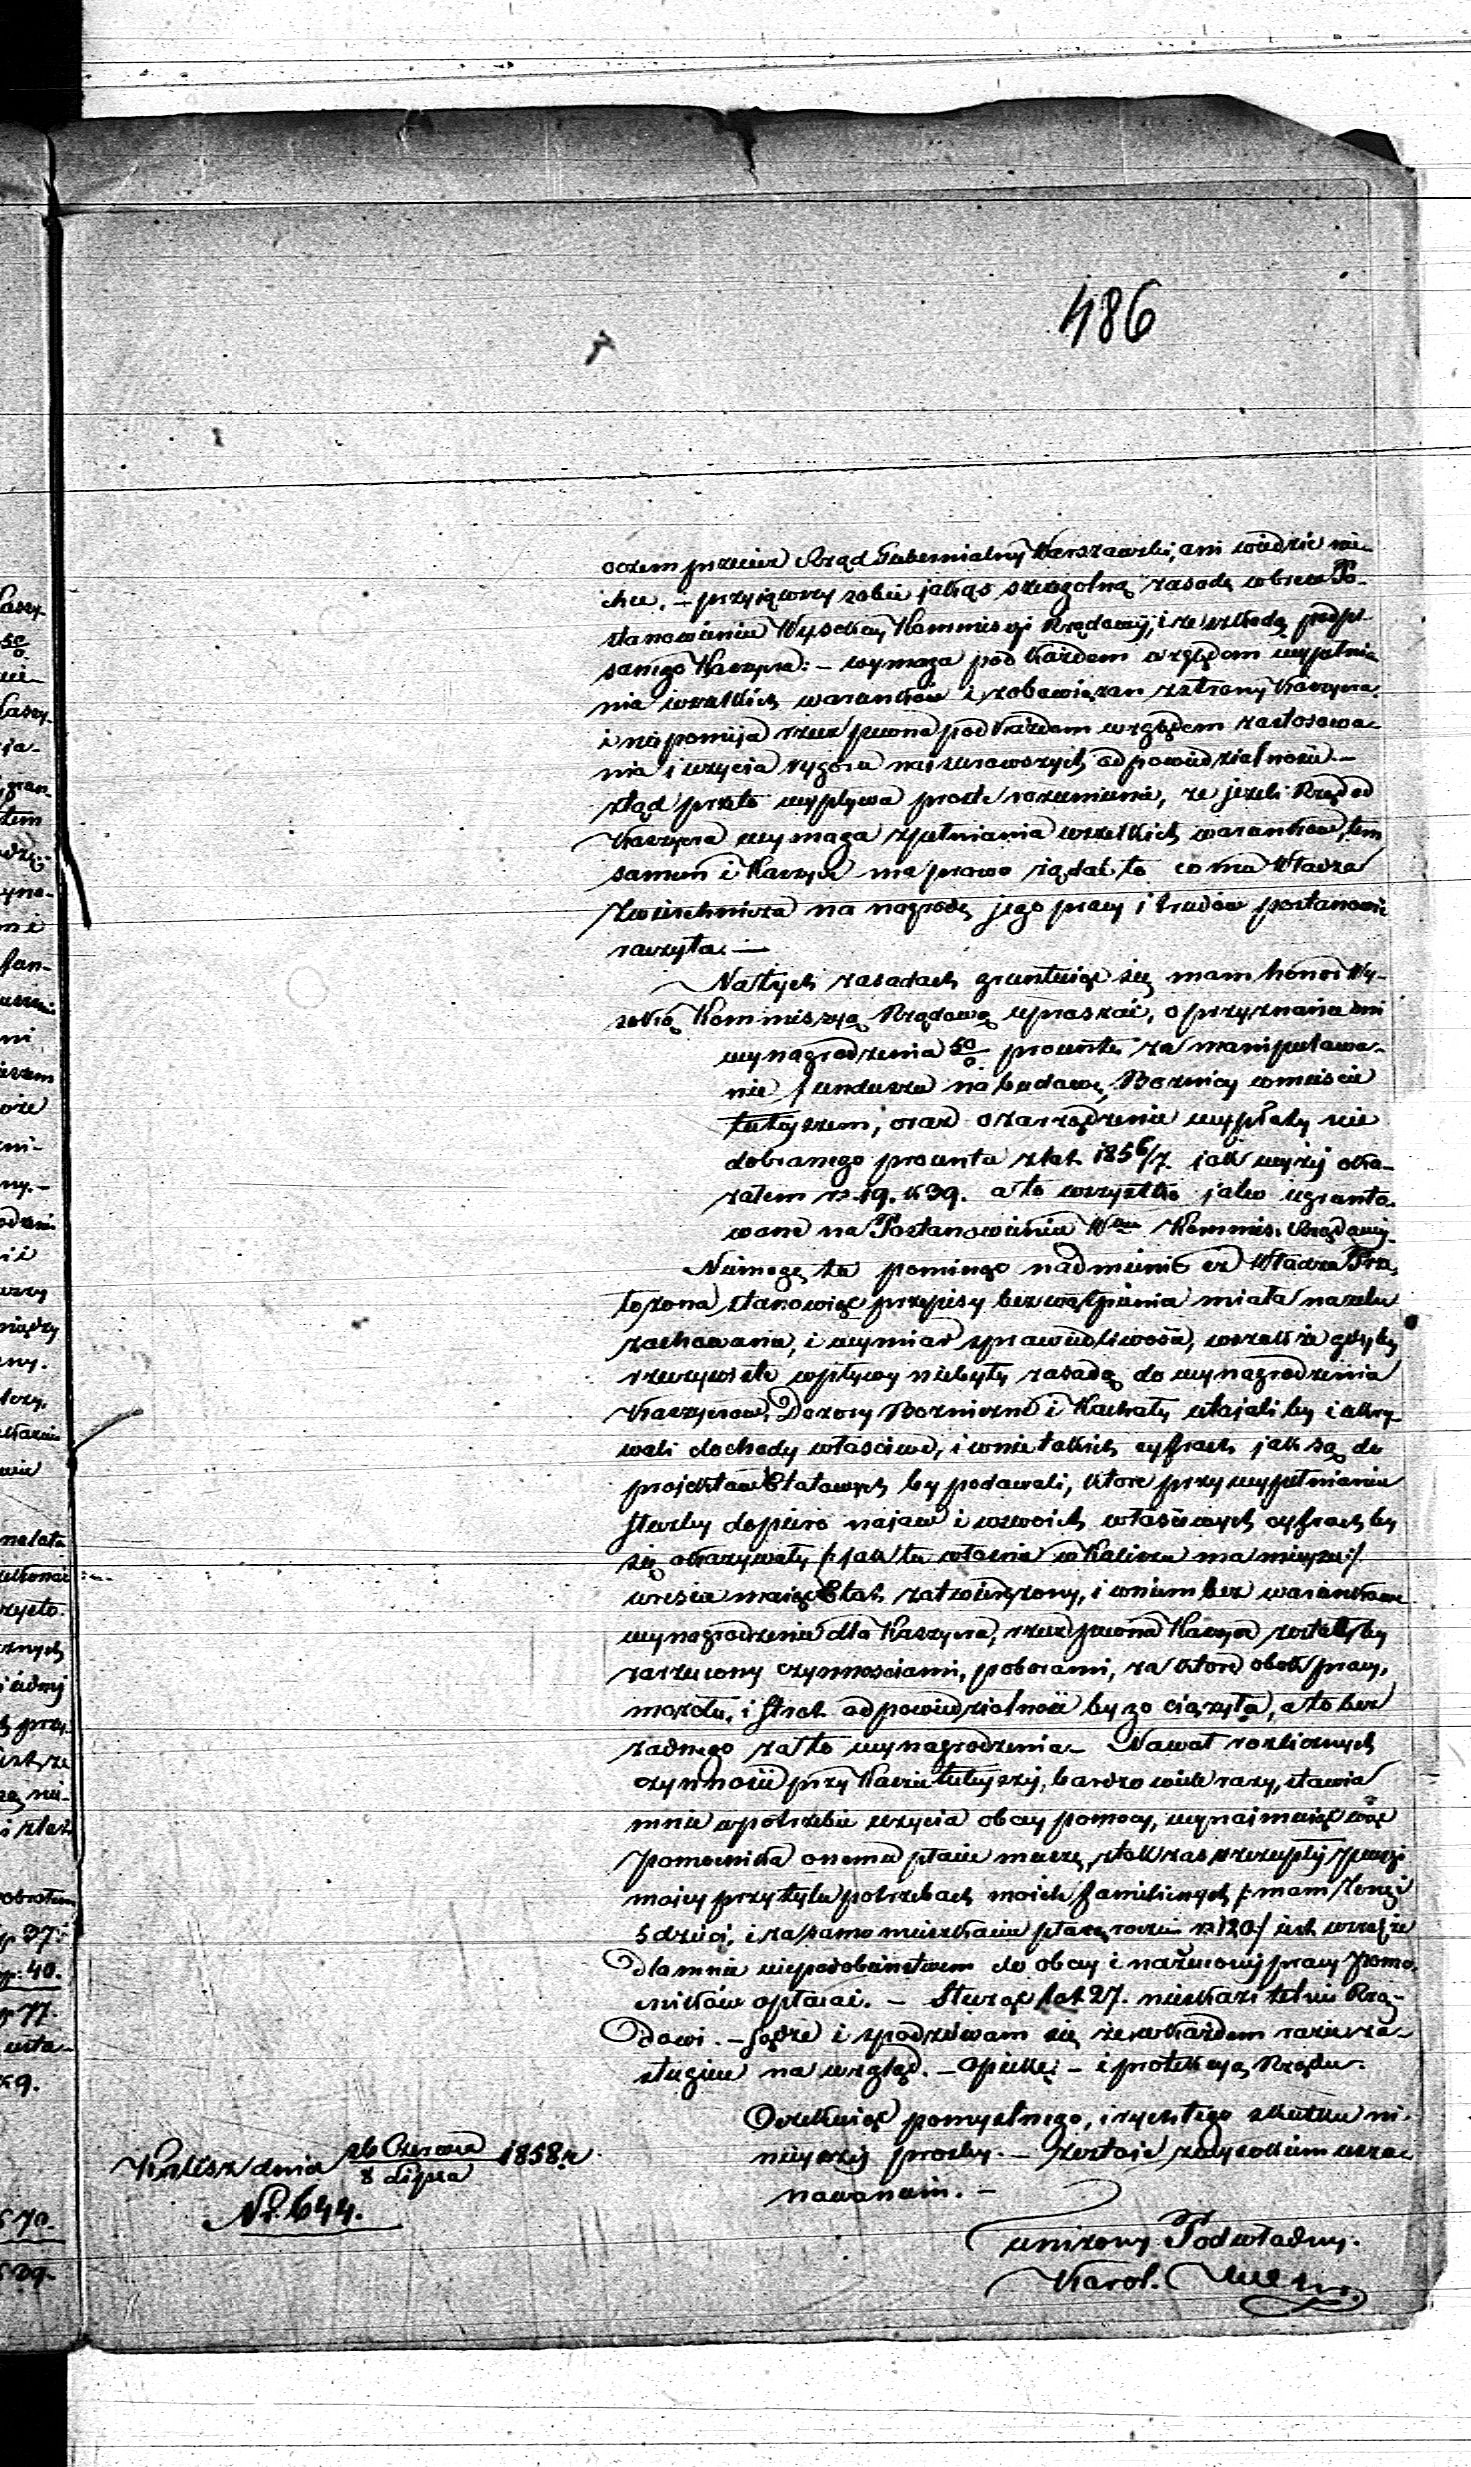 486
oczem przecież Rząd Gubernialny Warszawski, ani wiedzie nie
chce, – przyjąwszy sobie jakąś szczegolną zasadę wbrew Po-
stanowieniu Wysokiey Kommissyi Rządowej, i ze szkodą podpi
sanego Kassyera: – wymaga pod każdem względem wypełnia
nia wszelkich warunków i zobowiązan ze strony Kassyera,
i nie pomija rzecz pewna pod każdem względem zastosowa-
nia i użycia rygoru naysurowszych odpowiedzialności. –
ztąd przeto wypływa proste rozumienie, że jeżeli Rząd od
Kassyera wymaga spełniania wszelkich warunków, tem
samem i Kassyer ma prawo żądać to co mu Władza
Zwierzchnicza na nagrodę jego pracy i trudów postanowić
raczyła. –
Na tych zasadach gruntując się mam honor Wy-
soką Kommissyą Rządową upraszać, o przyznanie mi
wynagrodzenia 5% procentu za manipulowa-
nie funduszu na budowę Boznicy w mieście
tutejszem, oraz o zarządzenie wypłaty nie
dobranego procentu z lat 1856/7. jak wyżej oka-
załem rs. 19. k 39. a to wszystko jako ugrunto-
wane na Postanowieniu Wney Kommis. Rządowej.
Niemogę tu pominąć nadmienić iż Władza Prze
łożona, stanowiąc przepisy bez wątpienia miała na celu
zachowanie, i wymiar sprawiedliwości, wszak że gdyby
rzeczywiste wpływy niebyły zasadą do wynagrodzenia
Kassyerow, Dozory Bożniczne i Kachały utajali by i ukry
wali dochody właściwe, i w nie takich cyfrach jak są do
projektow Etatowych by podawali, które przy wypełnianiu
służby dopiero na jaw i w swoich właściwych cyfrach by
się okazywały /: jak tu właśnie w Kaliszu ma miejsce :/
wreście mając Etat zatwierdzony, i w niem bez warunkowe
wynagrodzenie dla Kassyera, rzecz pewna Kassyer zostałby
zarzucony czynnosciami, poborami, za które obok pracy,
mozołu, i strat odpowiedzialność by go ciążyła, a to bez
żadnego za to wynagrodzenia – Nawał rozlicznych
czynności przy Kassie tutejszej, bardzo wiele razy, stawia
mnie w potrzebie użycia obcey pomocy, wynajmując więc
pomocnika onemu płacić muszę, z tak zaś szczupłej pensyi
mojey przy tylu potrzebach moich familicznych /: mam żonę i
5 dzieci, i za samo mieszkanie płacę rocznie rs 120 :/ jest wszakże
dla mnie niepodobieństwem do obcey i narzuconej pracy pomo
cników opłacać. – Służąc lat 27. nieskazitelnie Rzą-
dowi. – Sądzę i spodziewam się że w każdem razie za-
sługuję na wzgląd. – Opiekę – i protekcyą Rządu.
Oczekując pomyślnego, i rychłego skutku ni-
niejszej prośby. – zostaję z wysokiem usza-
nowaniem. –
uniżony Podwładny.
Karol.
Kalisz dnia 26 Czerwca / 8 Lipca 1858. r
N. 644.